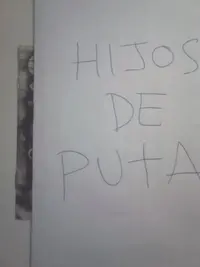 HIJOS
DE
PUtA